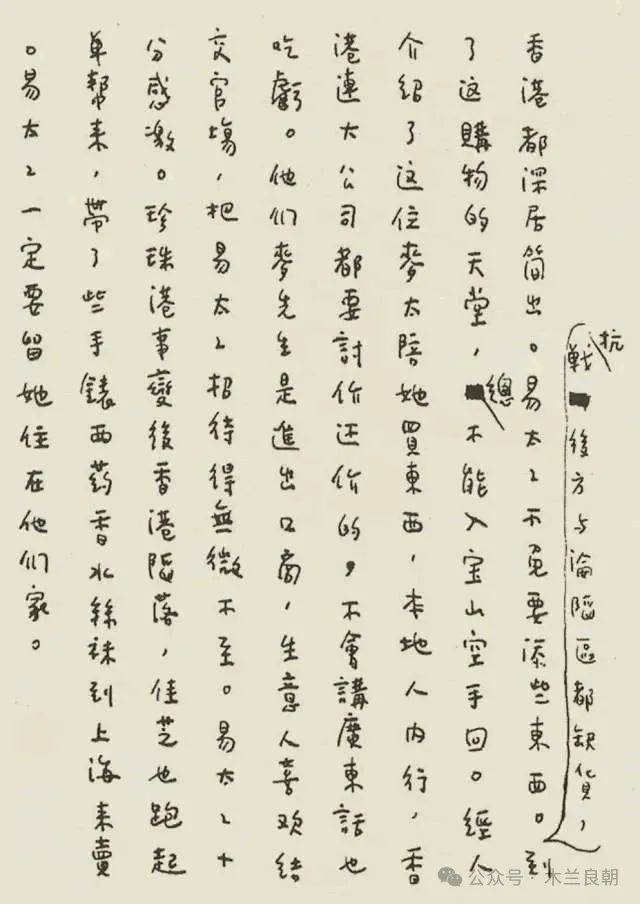 抗戰後方与淪陷區都缺貨，
香港都深居简出。易太々不免要添些東西。到
了这購物的天堂，總不能入宝山空手回。經人
介紹了这位麥太陪她買東西，本地人内行，香
港連大公司都要討价还价的，不會講廣東話也
吃虧。他们麥先生是進出口商，生意人喜欢结
交官場，把易太々招待得無微不至。易太々十
分感激。珍珠港事變後香港陷落，佳芝也跑起
单幇来，帶了些手錶西药香水絲袜到上海来賣
。易太々一定要留她住在他们家。
公众号·木兰良朝